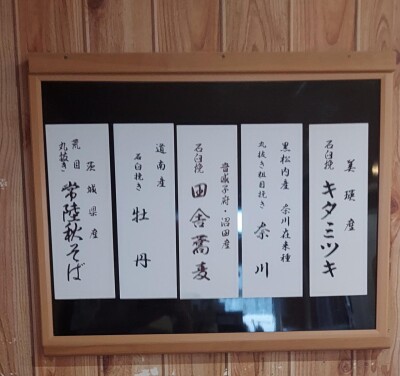 美瑛産
石臼挽 キタミツキ
黒松内産 奈川在来種
丸抜き粗目挽き 奈川
音威子府・沼田産
石臼挽 田舎蕎麦
道南産
石臼挽き 牡丹
茨城県産
荒目
丸抜き 常陸秋そば